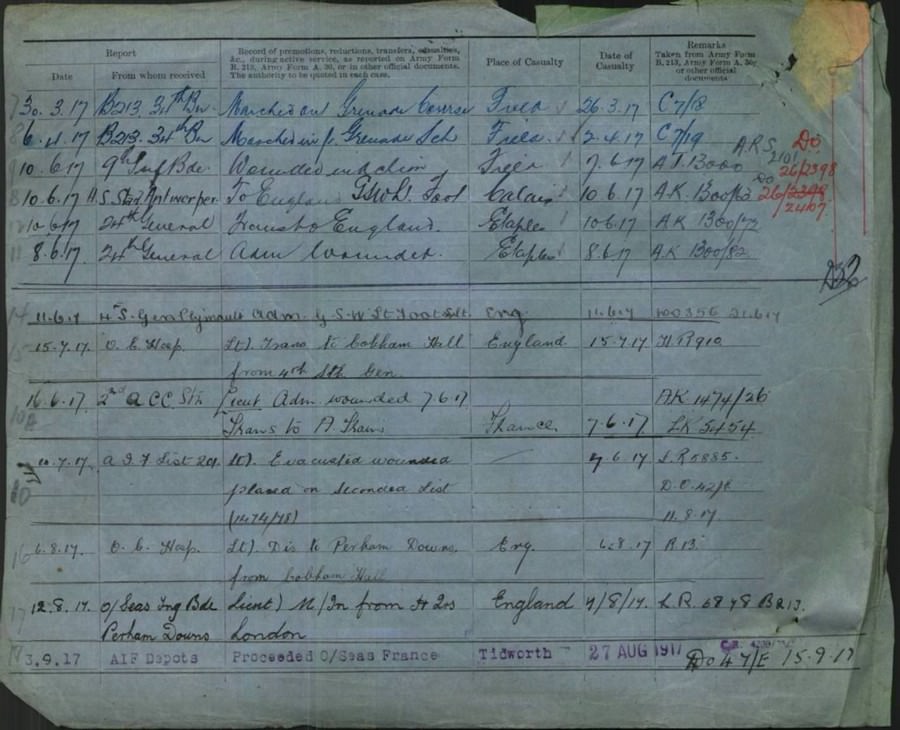 Report
Date
From whom received
Record of promotions, reductions, transfers, casualties,
&c., during active service, as reported on Army Form
B. 213, Army Form A. 36, or in other official documents.
The authority to be quoted in each case.
Place of Casualty
Date of
Casualty
Remarks
Taken from Army Form
B. 213, Army Form A. 36,
or other official
documents
30.3.17 B213 34th Bn Marched out Grenade Course Field 26.3.17 C7/18
6.4.17 B213 34th Bn Marched in fr Grenade Sch Field 2.4.17 C7/19
10.6.17 9th Inf Bde Wounded in action Field 7.6.17 A.F.B000
A.R.S. 2101 Do
Do 26/2398
10.6.17 H.S. Stad Antwerpen To England GSW Lt Foot Calais 10.6.17 A.K. 1300/62
26/2398
2407
10.6.17 24th General Transf to England. Etaples 10.6.17 A.K 1300/72
8.6.17 24th General Adm Wounded. Etaples 8.6.17 A.K 1300/82
11.6.17 4th S. Gen Plymouth Adm. G.S.W Lt Foot Eng. 11.6.17 100356 21.6.17
15.7.17. O. C. Hosp. Lt). Trans to Cobham Hall England 15.7.17 H.R910
from 4th Sth Gen.
16.6.17. 2nd A CC Stn Lieut Adm. wounded 7.6.17 A.K. 1474/26
Trans to A. Train France. 7.6.17 L.K 5454
.7.17. A I F List 201. Lt). Evacuated wounded 7.6.17 L.R 5885.
placed on Seconded List D.O.42/
(1474/78) 11.8.17.
6.8.17. O. C. Hosp. Lt) Dis to Perham Downs. Eng. 6.8.17 R 13.
from Cobham Hall
12.8.17. O/Seas Tng Bde Lieut) M/In from H Qrs England 7/8/17. L.R. 6878 B213.
Perham Downs London
3.9.17 AIF Depots Proceeded O/Seas France Tidworth 27 AUG 1917
Do 47/E 15.9.17